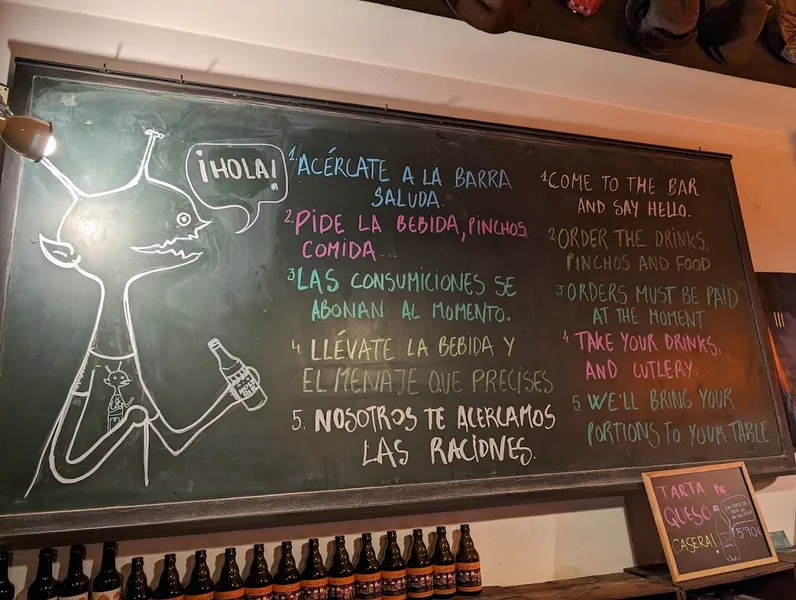 ¡HOLA!
1. ACÉRCATE A LA BARRA
SALUDA.
2. PIDE LA BEBIDA, PINCHOS,
COMIDA...
3. LAS CONSUMICIONES SE
ABONAN AL MOMENTO.
4. LLÉVATE LA BEBIDA Y
EL MENAJE QUE PRECISES
5. NOSOTROS TE ACERCAMOS
LAS RACIONES.
1. COME TO THE BAR
AND SAY HELLO.
2. ORDER THE DRINKS,
PINCHOS AND FOOD
3. ORDERS MUST BE PAID
AT THE MOMENT
4. TAKE YOUR DRINKS,
AND CUTLERY.
5. WE'LL BRING YOUR
PORTIONS TO YOUR TABLE
TARTA DE
QUESO
CASERA!
5'90€